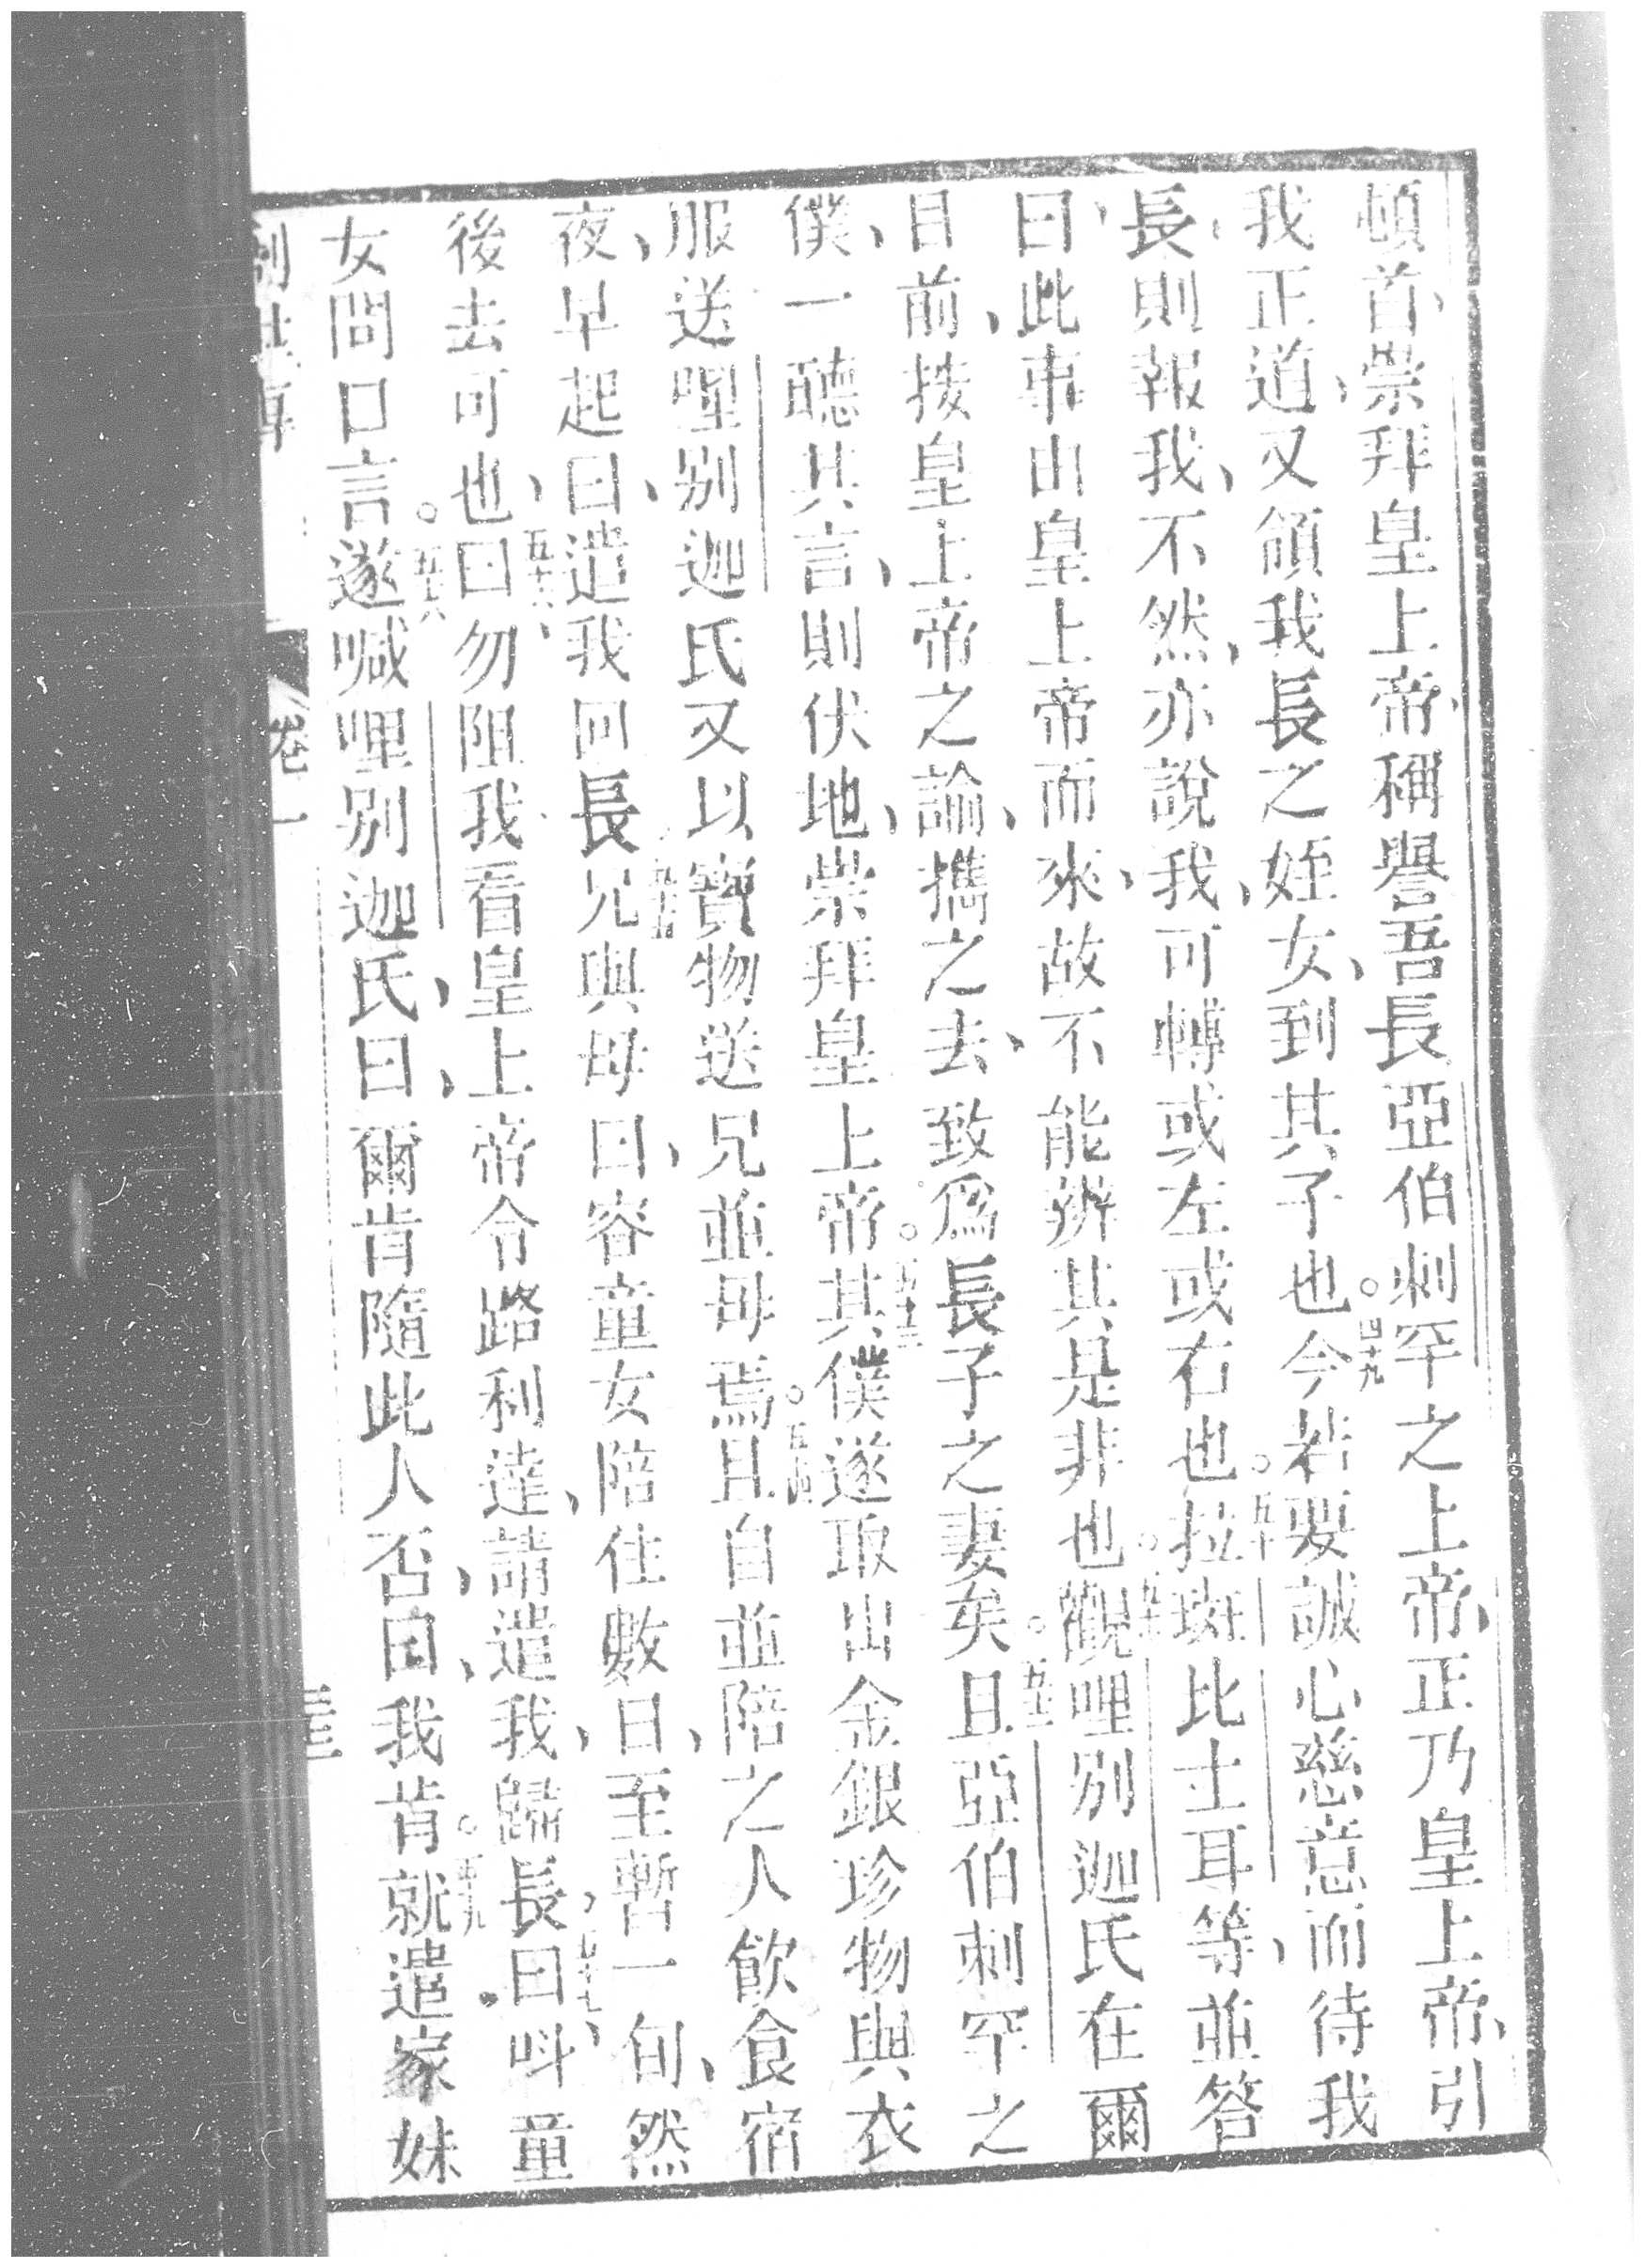 頓首、崇拜皇上帝、稱譽吾長亞伯刺罕之上帝、正乃皇上帝、引
我正道、又領我長之姪女、到其子也。四十九今若要誠心慈意而待我
長則報我、不然、亦說我、可轉或左或右也。五十拉班比土耳等、並答
曰、此事由皇上帝而來、故不能辨其是非也。五十一觀哩別迦氏在爾
目前、按皇上帝之論、攜之去、致爲長子之妻矣。五十二且亞伯刺罕之
僕、一聽其言、則伏地、崇拜皇上帝。五十三其僕遂取出金銀珍物與衣
服送哩別迦氏又以寶物送兄並母焉。五十四且自並陪之人飲食宿
夜、早起曰、遣我回長五十五兄與母曰、容童女陪住數日、至暫一旬、然
後去可也、五十六曰勿阻我看皇上帝令路利達、請遣我、歸長五十七、曰呌童
女問口言。五十八遂喊哩別迦氏、曰、爾肯隨此人否、囯、我肯。五十九就遣家妹
創世傳 卷一 三三